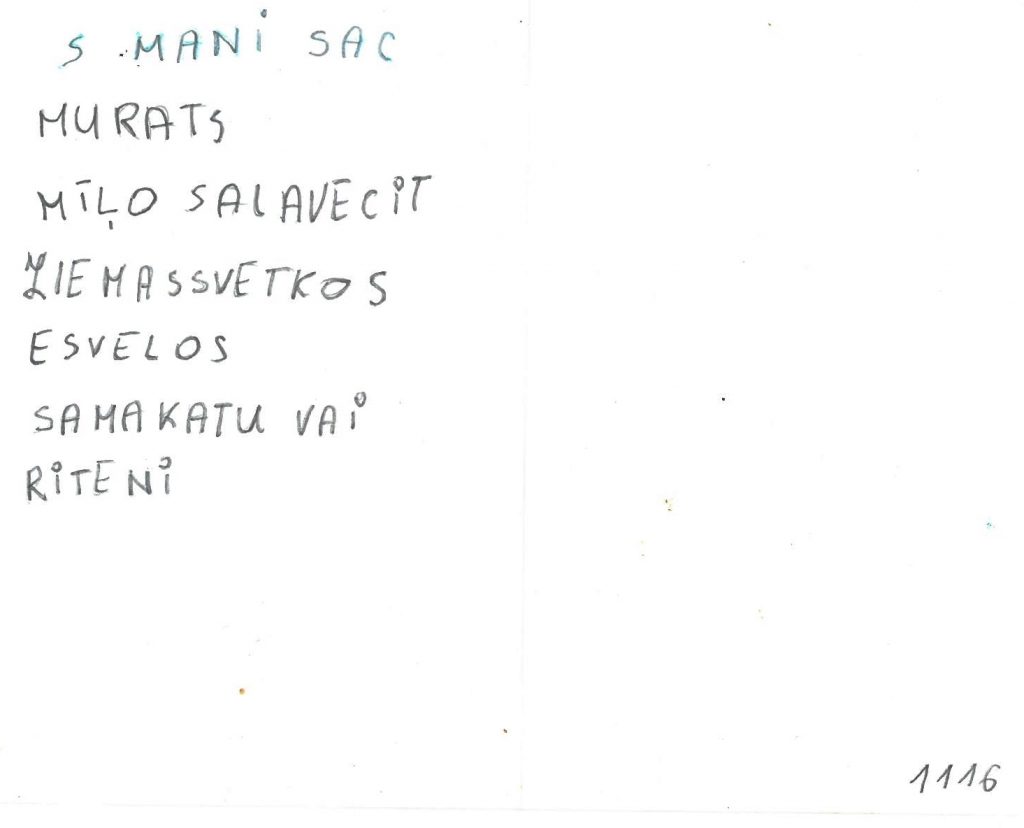 S MANI SAC
MURATS
MĪĻO SALAVECIT
ZIEMASSVETKOS
ESVELOS
SAMAKATU VAI
RITENI
1116